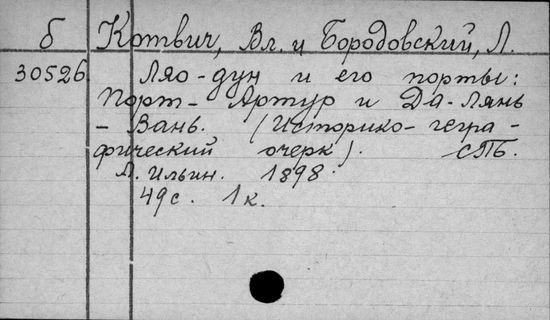 б Котвич, Вл. и Бородовский, Л.
30526 Ляо-дун и его порты:
Порт-Артур и Да-Лянь
-Вань. (Историко-геогра-
фический очерк). СПБ.
А. Ильин. 1898.
49 с. 1 к.